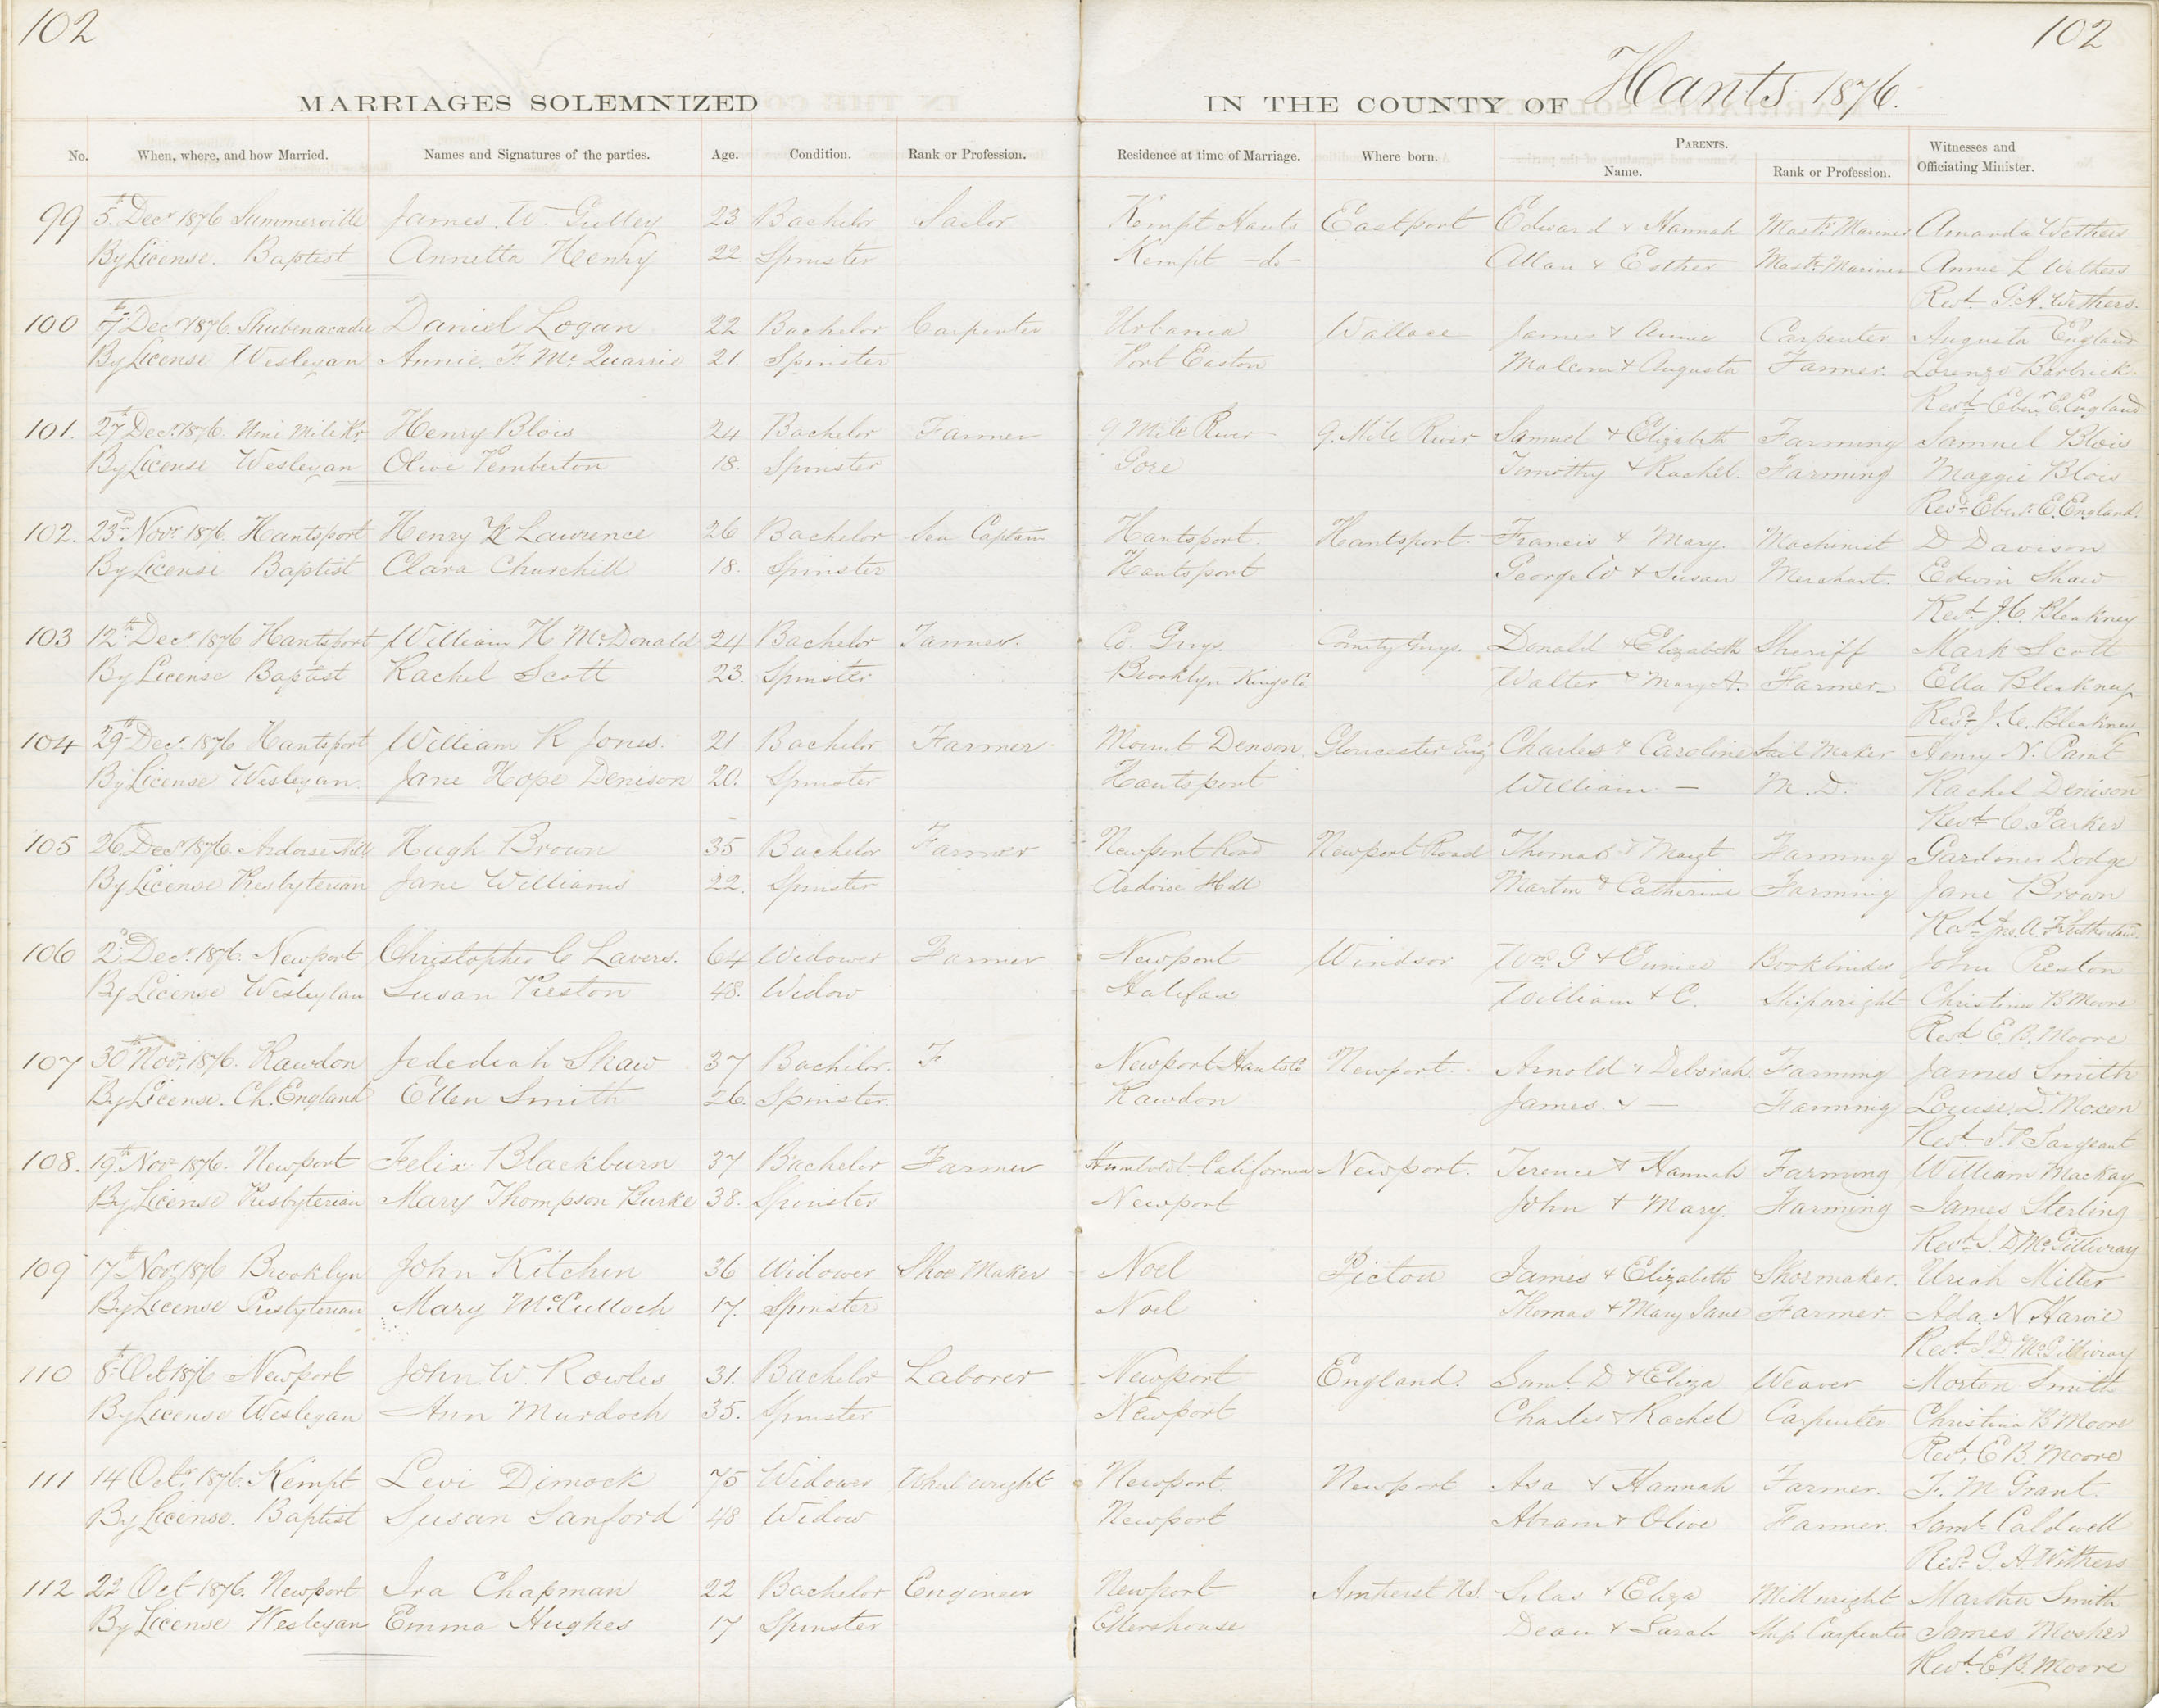 102
102
MARRIAGES SOLEMNIZED IN THE COUNTY OF Hants 1876.
No. When, where, and how Married. Names and Signatures of the parties. Age. Condition. Rank or Profession. Residence at time of Marriage. Where born. PARENTS. Name. Rank or Profession. Witnesses and Officiating Minister.
99 5th Decr 1876 Summerville James W. Gulley 23 Bachelor Sailor Kempt Hants Eastport Edward & Hannah Mastr Mariner Amanda Wethers
By License. Baptist Annetta Henry 22 Spinster Kempt -do- Allan & Esther Mastr Mariner Annie L Wethers
Revd G. A. Wethers.
100 7th Decr 1876. Shubenacadie Daniel Logan 22 Bachelor Carpenter Urbania Wallace James & Annie Carpenter Augusta England
By License Wesleyan Annie. F. McQuarrie 21. Spinster Port Easton Malcom & Augusta Farmer. Lorenzo Barbrick
Revd Ebenr E. England
101. 27th Decr 1876. Nine Mile Rr Henry Blois 24 Bachelor Farmer 9 Mile River 9. Mile River Samuel & Elizabeth Farming Samuel Blois
By License Wesleyan Olive Pemberton 18. Spinster Gore Timothy & Rachel. Farming Maggie Blois
Revd Ebenr E. England.
102. 23rd Novr 1876. Hantsport Henry Lawrence 26 Bachelor Sea Captain Hantsport. Hantsport. Francis & Mary. Machinist D Davison
By License Baptist Clara Churchill 18. Spinster Hantsport George W & Susan Merchant. Edwin Shaw
Revd J. C. Bleakney
103 12th Decr 1876 Hantsport William H McDonald 24 Bachelor Tanner. Co. Guys. County Guys. Donald & Elizabeth Sheriff Mark Scott
By License Baptist Rachel Scott 23. Spinster Brooklyn Kings Co Walter & Mary A. Farmer Ella Bleakney
Revd J. C. Bleakney
104 29th Decr 1876 Hantsport William R Jones. 21 Bachelor Farmer Mount Denson Gloucester Eng Charles & Caroline Sail Maker Henry N. Paint
By License Wesleyan Jane Hope Denison 20. Spinster Hantsport William — M. D. Rachel Denison
Revd C. Parker
105 26 Decr 1876. Ardoise Hill Hugh Brown 35 Bachelor Farmer Newport Road Newport Road Thomas & Margt Farming Gardiner Dodge
By License Presbyterian Jane Williams 22. Spinster Ardoise Hill Martin & Catherine Farming Jane Brown
Revd Jno. A. F.
106 2d Decr 1876. Newport Christopher C Lavers. 64 Widower Farmer Newport Windsor Wm G & Eunice Bookbinder John Preston
By License Wesleylan Susan Preston 48. Widow Halifax William & C. Shipwright Christina B Moore
Revd E. B. Moore
107 30th Novr 1876. Rawdon Jedediah Shaw 37 Bachelor. F Newport Hants Co Newport. Arnold & Deboiah. Farming James Smith
By License. Ch. England Ellen Smith 26. Spinster. Rawdon James. & — Farming Louise. D. Moxon
Revd J. P. Sargeant
108. 19th Novr 1876. Newport Felix Blackburn 37 Bachelor Farmer Humboldt-California Newport. Terence & Hannah Farming William Mackay
By License Presbyterian Mary Thompson Burke 38. Spinster Newport John & Mary. Farming James Sterling
Revd J. D McGillivray
109 17th Novr 1876 Brooklyn John Kitchin 36 Widower Shoe Maker Noel Pictou James & Elizabeth Shoemaker. Uriah Miller
By License Presbyterian Mary McCulloch 17. Spinster Noel Thomas & Mary Jane Farmer. Ada. N. Harvie
Revd J. D. McGillivray
110 8th Oct 1876 Newport John W. Rowles 31. Bachelor Laborer Newport England. Saml. D & Eliza Weaver Morton Smith
By License Wesleyan Ann Murdoch 35. Spinster Newport Charles & Rachel Carpenter Christina B Moore
Revd. E. B. Moore
111 14 Octr. 1876. Kempt Levi Dimock 75 Widower Wheelwright Newport. Newport Asa & Hannah Farmer. F. M Grant.
By License. Baptist Susan Sanford 48 Widow Newport Abram & Olive Farmer. Saml Caldwell
Revd G. A. Withers
112 22 Oct 1876. Newport Ira Chapman 22 Bachelor Engineer Newport Amherst N.S. Silas & Eliza Millwright Martha Smith
By License Wesleyan Emma Hughes 17 Spinster Ellershouse Dean & Sarah Ship Carpenter James Mosher
Revd. E. B. Moore